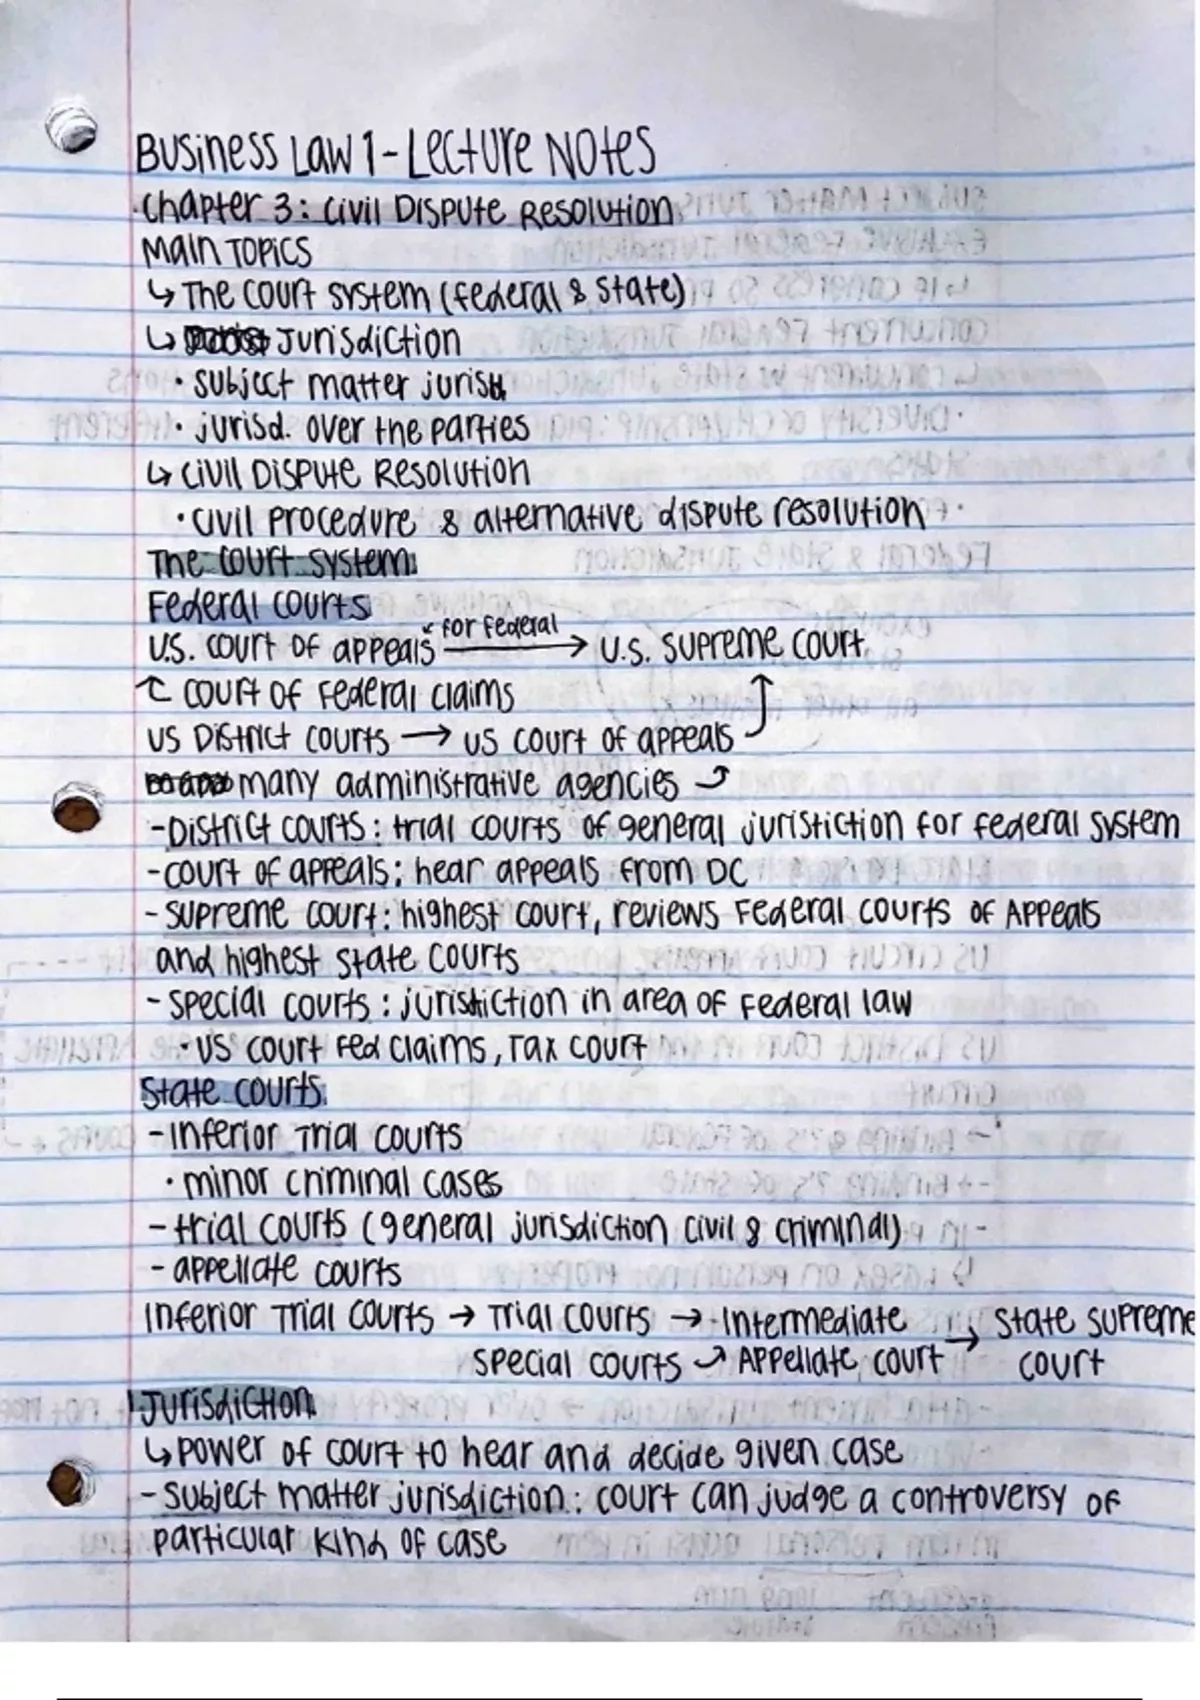 Business Law 1 - Lecture Notes
Chapter 3: Civil Dispute Resolution
Main Topics
↳ The court system (federal & state)
↳ Jurisdiction
• subject matter jurisd.
• jurisd. over the parties
↳ Civil Dispute Resolution
• civil procedure & alternative dispute resolution
The court system:
Federal courts
↙ for federal
U.S. court of appeals ⟶ U.S. Supreme Court
↑ court of Federal claims
US District courts → US court of appeals ⤴
many administrative agencies ⤴
- District courts: trial courts of general juristiction for federal system
- court of appeals: hear appeals from DC
- Supreme court: highest court, reviews Federal courts of Appeals
and highest state courts
- special courts: juristiction in area of Federal law
• US court Fed claims, Tax court
State courts:
- Inferior Trial courts
• minor criminal cases
- trial courts (general jurisdiction civil & criminal)
- appellate courts
Inferior Trial courts → Trial courts → Intermediate → State supreme
special courts ↗ Appellate court court
Jurisdiction
↳ power of court to hear and decide given case
- subject matter jurisdiction: court can judge a controversy of
particular kind of case